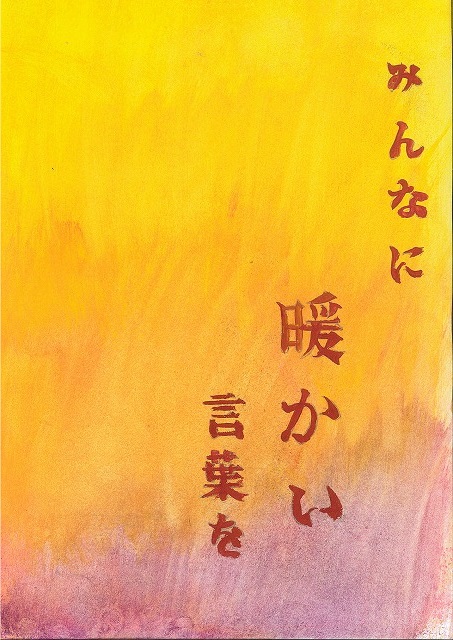 みんなに
暖かい
言葉を